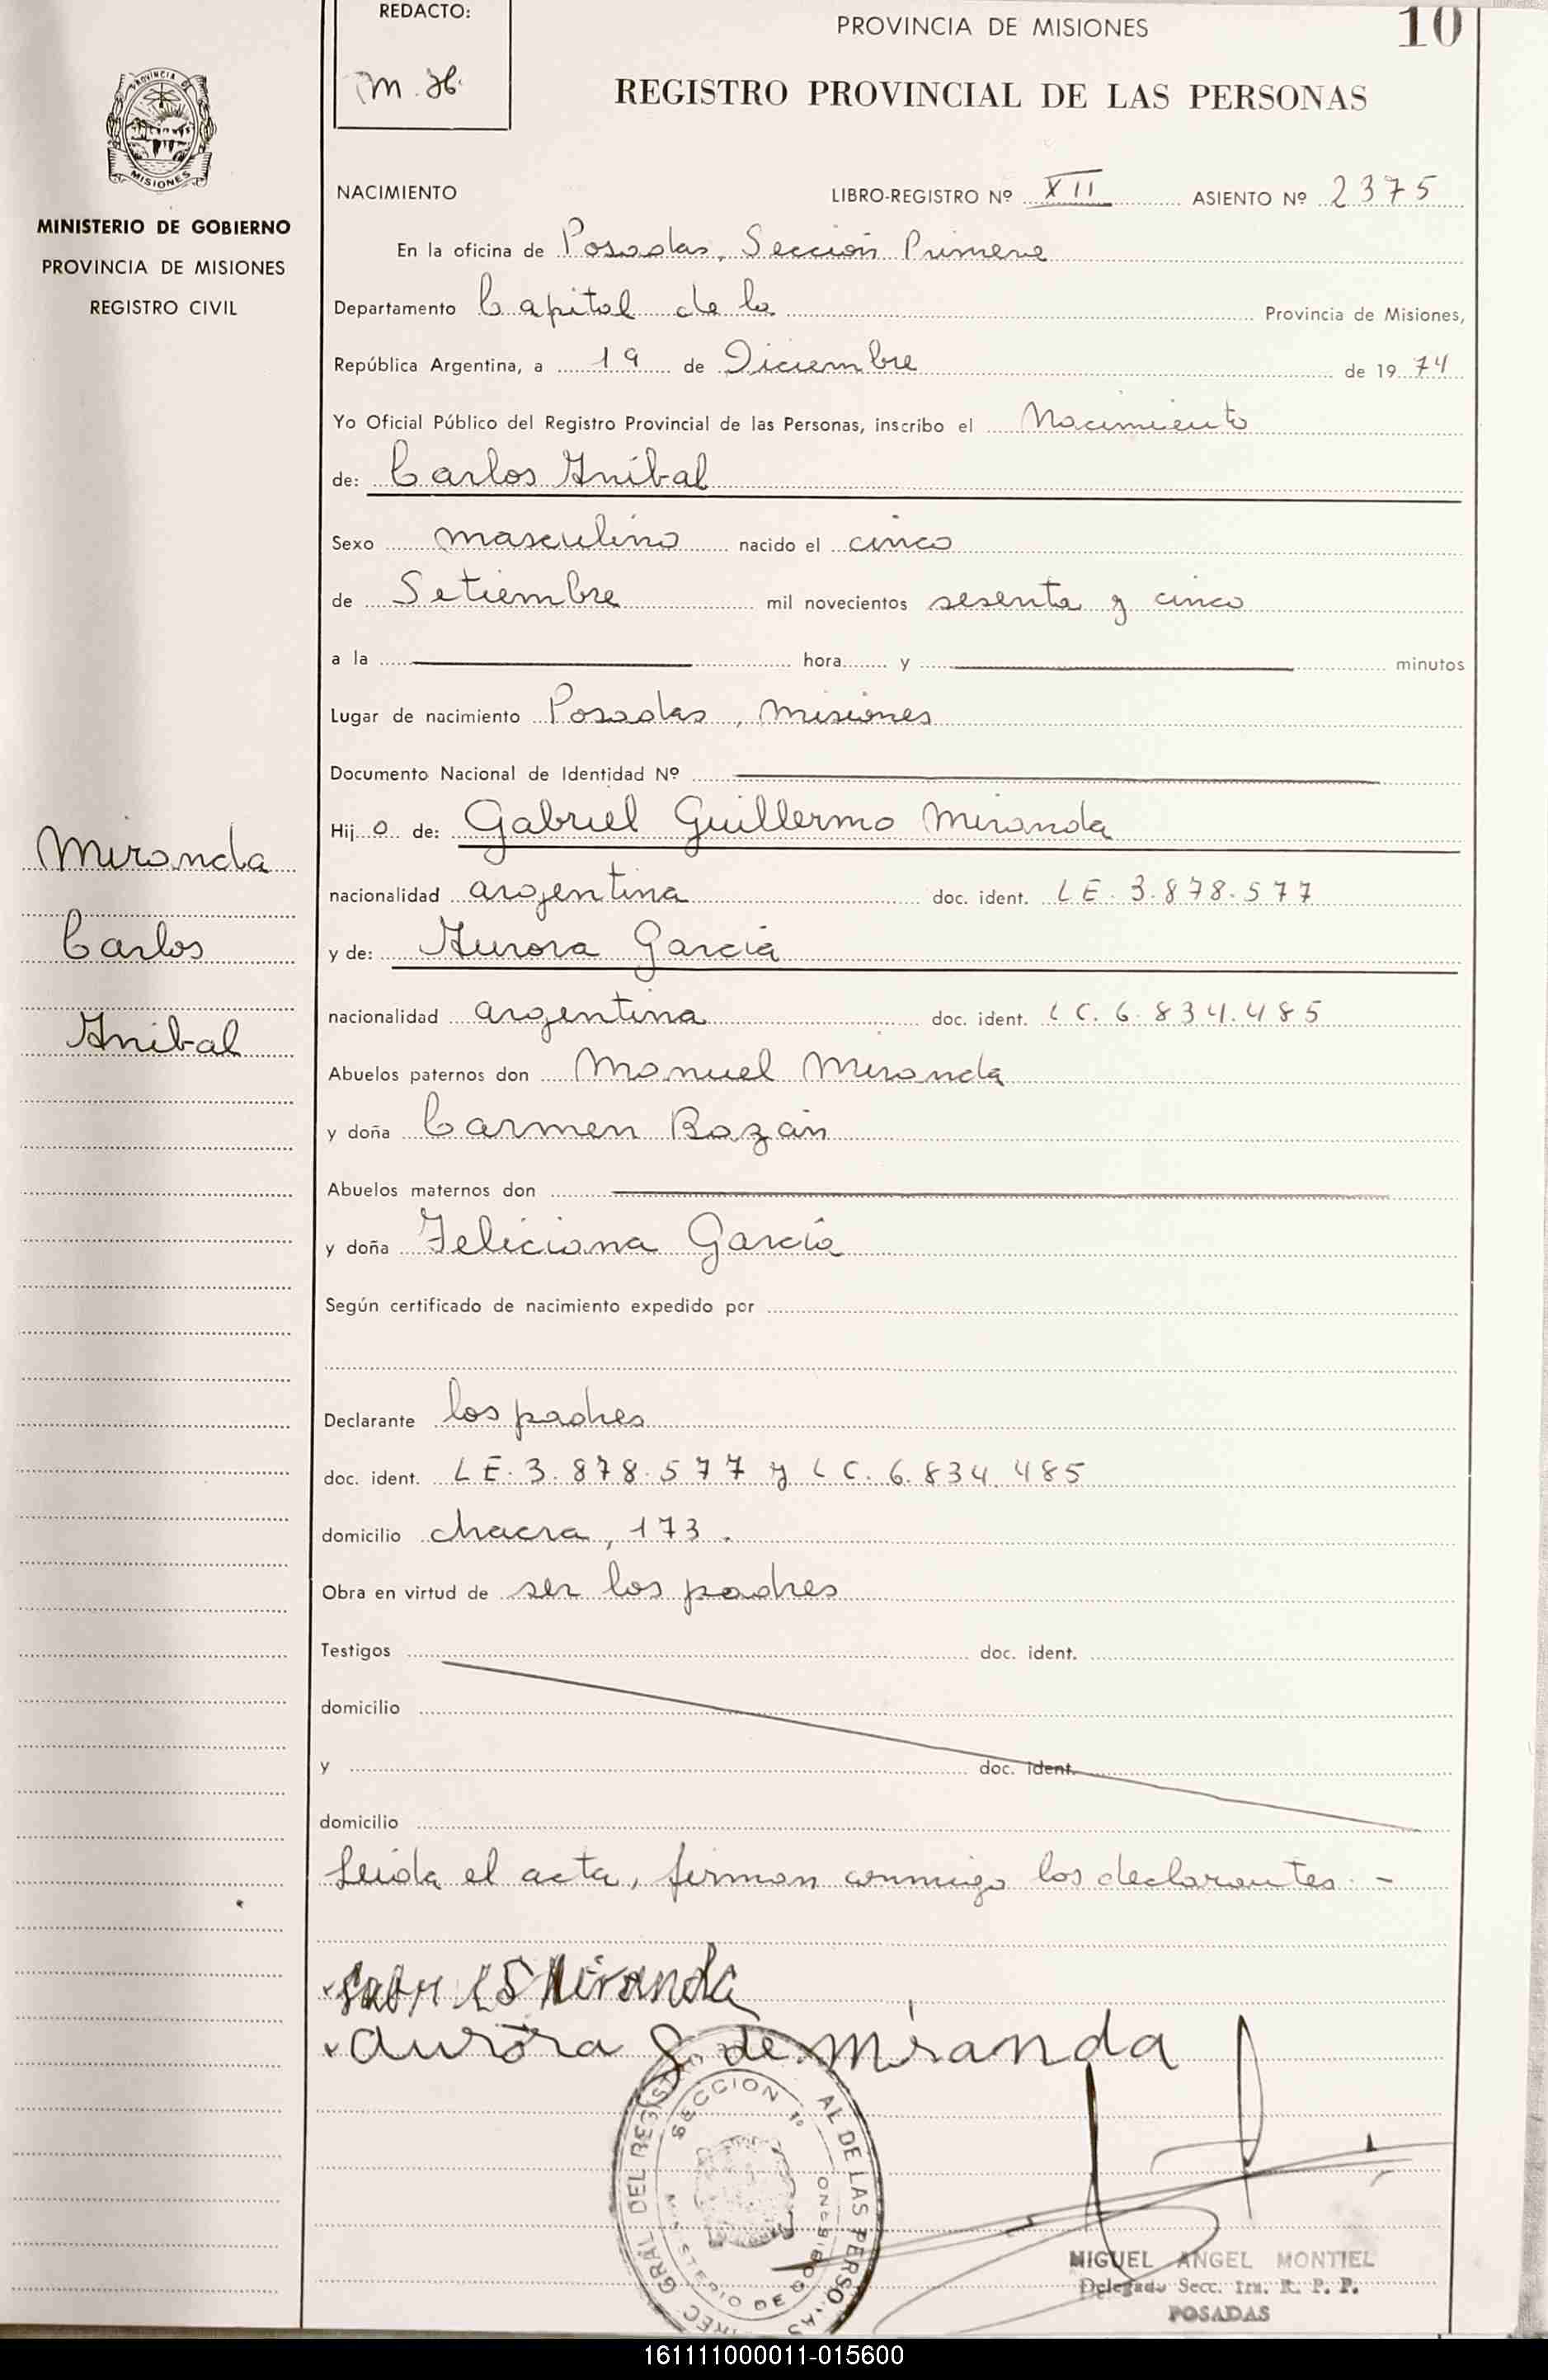 REDACTO:
M. H.
PROVINCIA DE MISIONES
10
REGISTRO PROVINCIAL DE LAS PERSONAS
MISIONES
MINISTERIO DE GOBIERNO
PROVINCIA DE MISIONES
REGISTRO CIVIL
NACIMIENTO LIBRO-REGISTRO Nº XII ASIENTO Nº 2375
En la oficina de Posadas, Sección Primera
Departamento Capital de la Provincia de Misiones,
República Argentina, a 19 de Diciembre de 1974
Yo Oficial Público del Registro Provincial de las Personas, inscribo el Nacimiento
de: Carlos Aníbal
Sexo masculino nacido el cinco
de Setiembre mil novecientos sesenta y cinco
a la hora y minutos
Lugar de nacimiento Posadas, Misiones
Documento Nacional de Identidad Nº
Hijo de: Gabriel Guillermo Miranda
nacionalidad argentina doc. ident. LE. 3.878.577
y de: Aurora García
nacionalidad argentina doc. ident. LC. 6.834.485
Abuelos paternos don Manuel Miranda
y doña Carmen Bazán
Abuelos maternos don
y doña Feliciana García
Según certificado de nacimiento expedido por
Declarante los padres
doc. ident. LE. 3.878.577 y LC. 6.834.485
domicilio chacra, 173.
Obra en virtud de ser los padres
Testigos doc. ident.
domicilio
y doc. ident.
domicilio
Leída el acta, firman conmigo los declarantes. -
Miranda
Carlos
Aníbal
Miranda
Aurora G de Miranda
SECCION 1º
MINISTERIO DE GOBIERNO
GRAL DEL REGISTRO
AL DE LAS PERSONAS
MIGUEL ANGEL MONTIEL
Delegado Secc. 1ra. R. P. P.
POSADAS
161111000011-015600